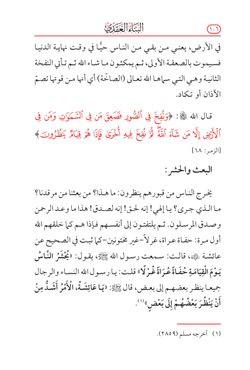 ١٠٦
البناء العقدي
في الأرض، يعني من بقي مـن النـاس حيًّا في وقت نهاية الدنيـا
فسيموت بالصعقة الأولى، ثـم يمكثون ما شاء الله ثم تأتي النفخة
الثانية وهـي التـي سماها الله تعالى (الصاخّة) أي أنها مـن قوتها تصمّ
الآذان أو تكاد.
قـال الله ﷻ: ﴿وَنُفِخَ فِي ٱلصُّورِ فَصَعِقَ مَن فِي ٱلسَّمَٰوَٰتِ وَمَن فِي
ٱلْأَرْضِ إِلَّا مَن شَآءَ ٱللَّهُ ثُمَّ نُفِخَ فِيهِ أُخْرَىٰ فَإِذَا هُمْ قِيَامٌ يَنظُرُونَ﴾
[الزمر: ٦٨]
البعث والحشر:
يخرج الناس من قبورهم ينظرون: ما هـذا؟ من بعثنا من مرقدنا؟
مـا الـذي جـرى؟ يا إلهي! إنه لحـق! إنه لصدق! هذا ما وعـد الرحمـن
وصدق المرسلون. ثـم يلتفتـون إلى أنفسـهم فـإذا هـم كما خلقهم الله
أول مـرة: حفـاة عـراة، غرلًا-غير مختونين-كما ثبـت في الصحيح عن
عائشة ﵂، قالت: سمعت رسول الله ﷺ، يقول: «يُحْشَرُ النَّاسُ
يَـوْمَ الْقِيَامَـةِ حُفَاةً عُرَاةً غُرْلًا» قلت: يا رسـول الله النسـاء والرجال
جميعـا ينظر بعضهـم إلى بعض، قال ﷺ: «يَا عَائِشَـةُ، الْأَمْرُ أَشَـدُّ مِنْ
أَنْ يَنْظُرَ بَعْضُهُمْ إِلَى بَعْضٍ»(١).
(١) أخرجه مسلم (٢٨٥٩).